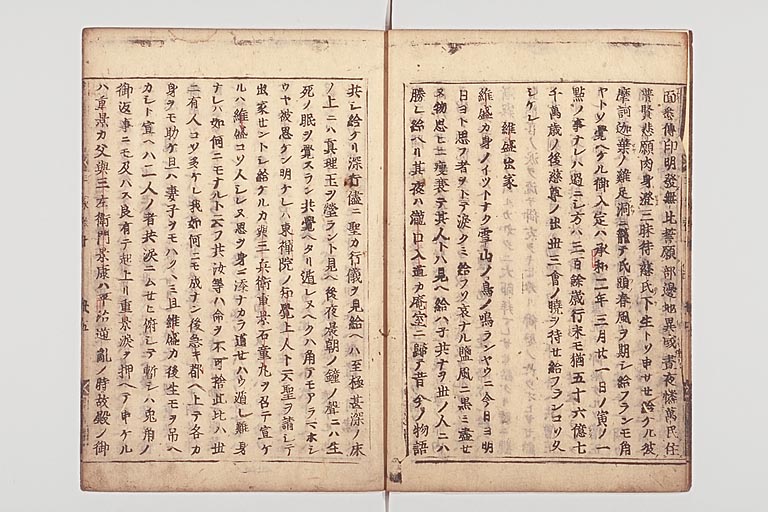 面奉傳印明發無比誓願部邊地異域晝夜愍萬民住
普賢悲願肉身證三昧待慈氏下生トソ申サセ給ケル彼
摩訶迦葉ノ雞足洞ニ籠テ氏頭春風ヲ期シ給フランモ角
ヤトソ覺ヘケル御入定ハ承和二年三月廿一日ノ寅ノ一
點ノ事ナレハ過ニシ方ハ三百餘歳行末モ猶五十六億七
千萬歳ノ後慈尊ノ出世三會ノ曉ヲ待セ給フランコソ久
シケレ
維盛出家
維盛カ身ノイツトナク雪山ノ鳥ノ鳴ランヤウニ今日ヨ明
日ヨト思フ者ヲトテ淚クミ給フソ哀ナル鹽風ニ黒ミ盡セ
ヌ物思ヒニ瘦衰テ其人トハ見ヘ給ハ子共ナヲ世ノ人ニハ
勝レ給ヘリ其夜ハ瀧口入道カ庵室ニ歸テ昔今ノ物語
共シ給ケリ深行儘ニ聖カ行儀ヲ見給ヘハ至極甚深ノ床
ノ上ニハ真理ノ玉ヲ瑩ラント見ヘ後夜晨朝ノ鐘ノ聲ニハ生
死ノ眠ヲ覺スラン共覺ヘタリ遁レヌヘクハ角テモアラマホシ
ウヤ被思ケン明ケレハ東禪院ノ智覺上人ト云聖ヲ請シテ
出家セントシ給ケルカ與三兵衛重景石童丸ヲ召テ宣ケ
ルハ維盛コソ人シレヌ思ヲ身ニ添ナカラ道セハウ遁レ難身
ナレハ如何ニモナルト云フ共汝等ハ命ヲ不可捨此比ハ世
ニ有人コソ多ケレ我如何ニモ成ナン後急キ都ヘ上テ各カ
身ヲモ助ケ且ハ妻子ヲモハククミ且維盛カ後生モヲ吊ヘ
カシト宣ヘハ二人ノ者共淚ニムセヒ俯シテ暫シハ兎角ノ
御返事ニモ及ハス良有テ起上リ重景淚ヲ押ヘテ申ケル
ハ重景カ父與三左衛門景康ハ平治逆亂ノ時故殿ノ御